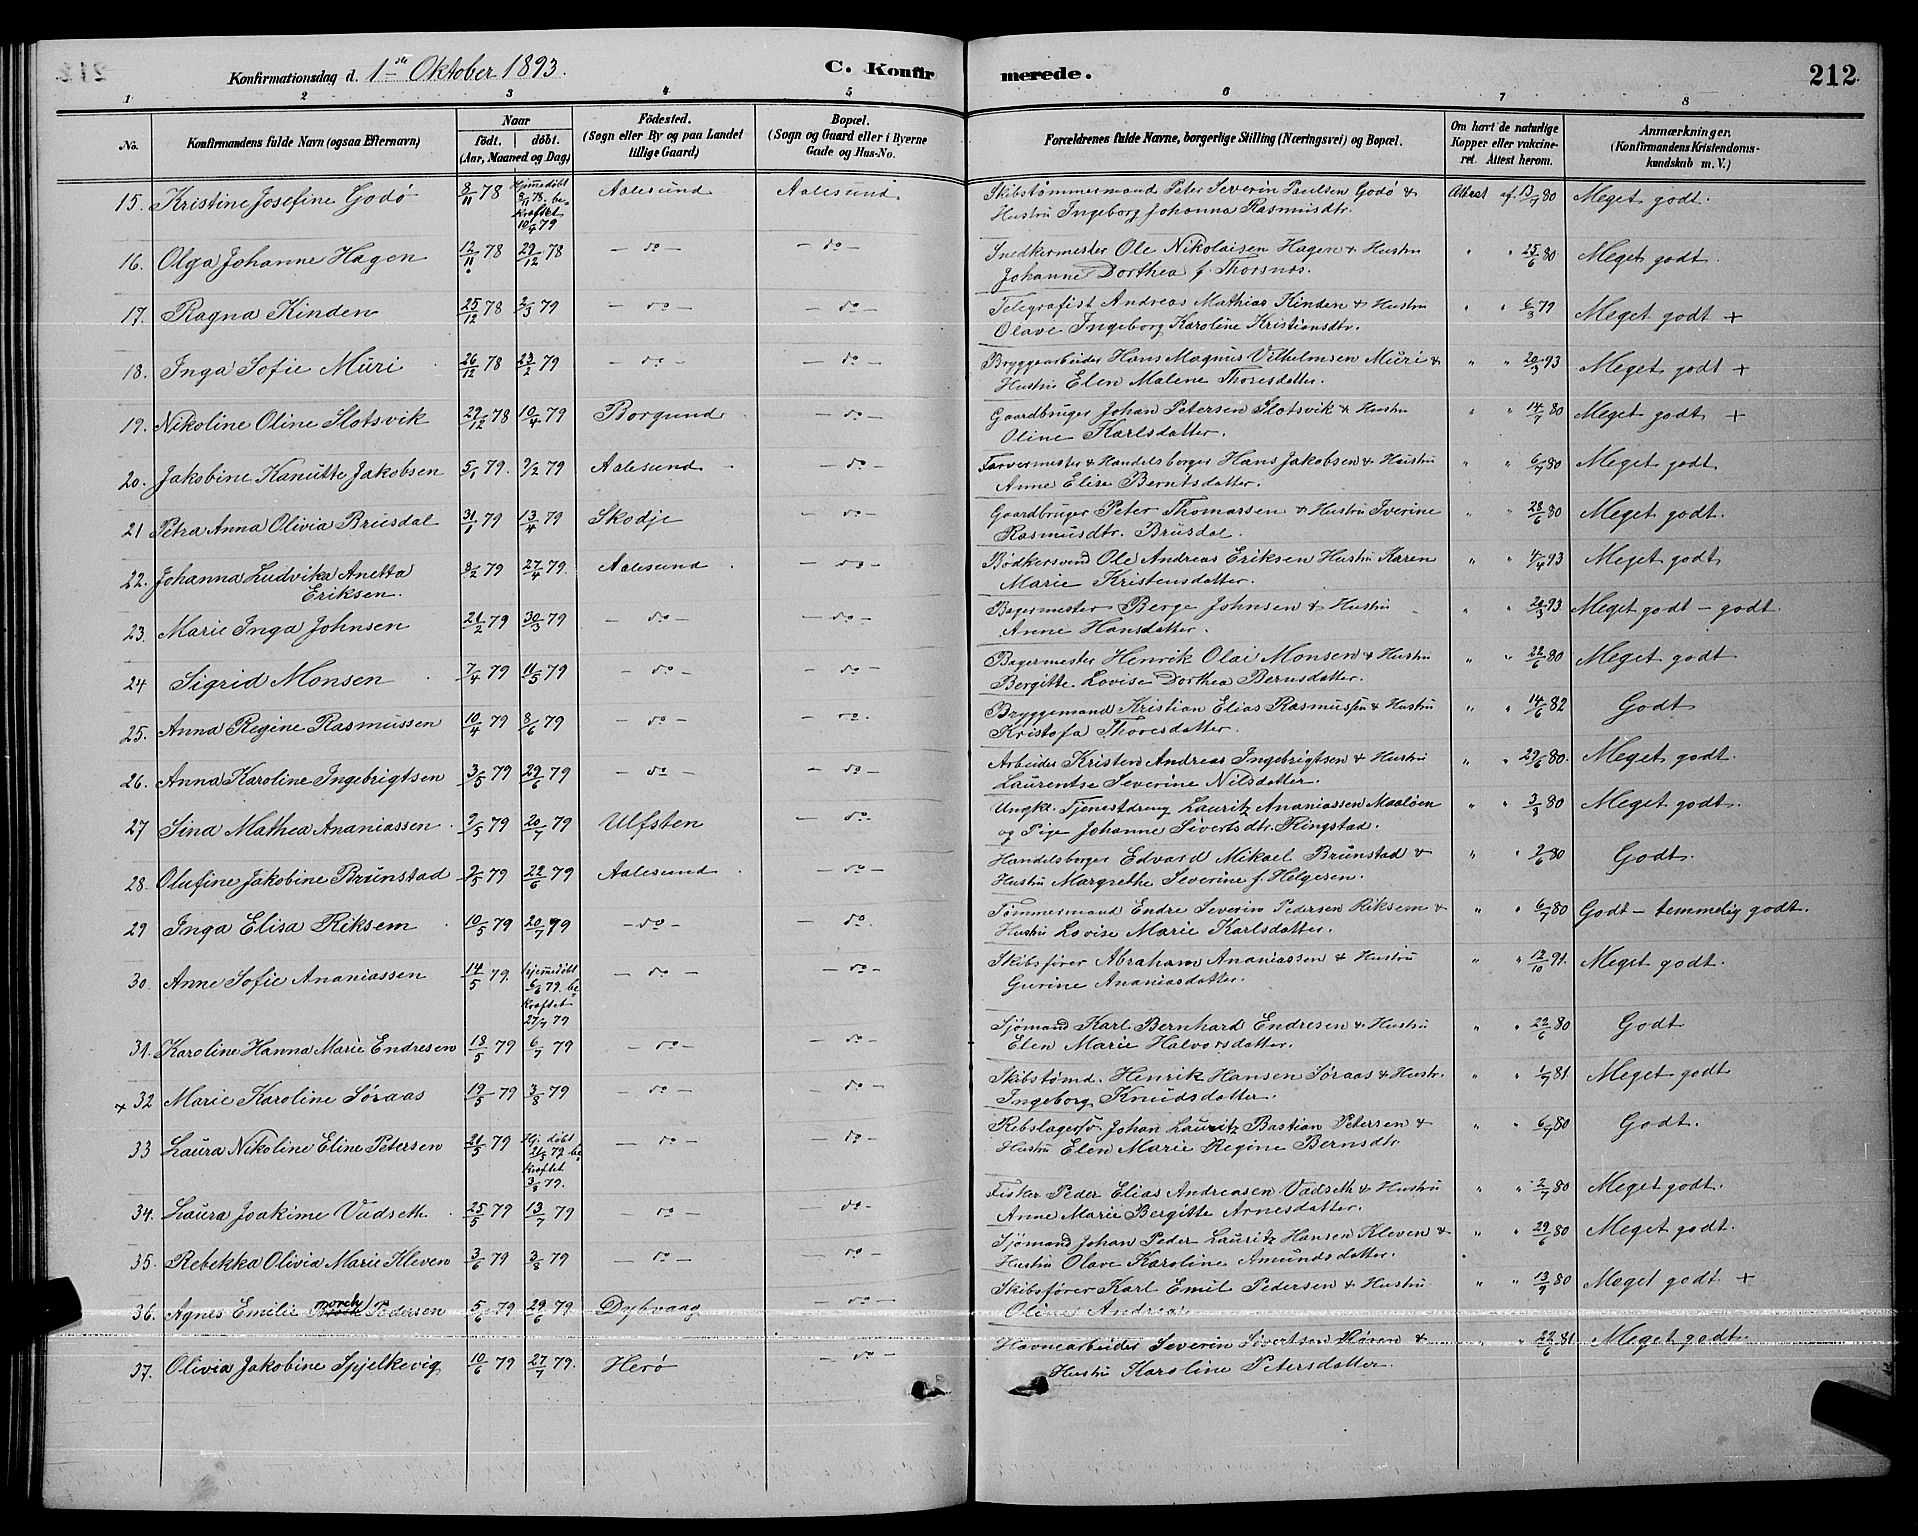 Konfirmationsdag d. 1ste Oktober 1893. C. Konfirmerede. 212
1 2 3 4 5 6 7 8
No. Konfirmandens fulde Navn (ogsaa Efternavn) Naar født. døbt. (Aar, Maaned og Dag) Fødested. (Sogn eller By og paa Landet tillige Gaard) Bopæl. (Sogn og Gaard eller i Byerne Gade og Hus-No. Forældrenes fulde Navne, borgerlige Stilling (Næringsvei) og Bopæl. Om havt de naturlige Kopper eller vaccineret. Attest herom. Anmærkninger. (Konfirmandens Kristendomskundskab m. V.)
15. Kristine Josefine Godø 8/11 78 Hjemmedøbt 8/11 78. bekræftet 10/4 79 Aalesund Aalesund Skibstømmermand Peter Severin Paulsen Godø & Hustru Ingeborg Johanna Rasmusdtr. Attest af 13/7 80 Meget godt.
16. Olga Johanne Hagen 12/11 78 29/12 78 – do – – do – Snedkermester Ole Nikolaisen Hagen & Hustru Johanne Dorthea f. Thorsnes. " " 25/6 80 Meget godt.
17. Ragna Kinden 25/12 78 2/3 79 – do – – do – Telegrafist Andreas Mathias Kinden & Hustru Olave Ingeborg Karoline Kristiansdtr. " " 6/3 79 Meget godt +
18. Inga Sofie Muri 26/12 78 23/2 79 – do – – do – Bryggearbeider Hans Magnus Vilhelmsen Muri & Hustru Elen Malene Thoresdatter. " " 20/3 93 Meget godt +
19. Nikoline Oline Slotsvik 29/12 78 10/4 79 Borgund – do – Gaardbruger Johan Petersen Slotsvik & Hustru Oline Karlsdatter. " " 14/7 80 Meget godt +
20. Jakobine Kanutte Jakobsen 5/1 79. 9/2 79 Aalesund – do – Farvermester & Handelsborger Hans Jakobsen & Hustru Anne Elise Berntsdatter. " " 6/7 80 Meget godt
21 Petra Anna Olivia Brusdal 31/1 79 13/4 79 Skodje – do – Gaardbruger Peter Thomassen & Hustru Iverine Rasmusdtr. Brusdal. " " 28/6 80 Meget godt.
22. Johanna Ludvika Anetta Eriksen. 8/2 79 27/4 79. Aalesund – do – Bødkersvend Ole Andreas Eriksen Hustru Karen Marie Kristensdatter. " " 4/4 93 Meget godt
23. Marie Inga Johnsen 21/2 79 30/3 79 – do – – do – Bagermester Berge Johnsen & Hustru Anne Hansdatter. " " 20/3 93. Meget godt – godt.
24 Sigrid Monsen 7/4 79 11/5 79 – do – do – Bagermester Henrik Olai Monsen & Hustru Bergitte Lovise Dorthea Bernsdatter. " " 22/6 80 Meget godt
25. Anna Regine Rasmussen 10/4 79 8/6 79 – do – – do. Bryggemand Kristian Elias Rasmussen & Hustru Kristofa Thoresdatter. " " 14/6 82 Godt
26. Anna Karoline Ingebrigtsen 3/5 79 29/6 79 – do – – do – Arbeider Kristen Andreas Ingebrigtsen & Hustru Laurentse Severine Nilsdatter. " " 29/6 80. Meget godt.
27 Sina Mathea Ananiassen 9/5 79 20/7 79 Ulfsten – do – Ungk. Tjenestdreng Lauritz Ananiassen Maaløen og Pige Johanne Sivertsdtr. Ringstad. " " 3/3 80 Meget godt.
28. Olufine Jakobine Brunstad 9/5 79 22/6 79 Aalesund – do – Handelsborger Edvard Mikael Brunstad & Hustru Margrethe Severine f. Helgesen. " " 2/6 80 Godt.
29 Inga Elisa Riksem 10/5 79 20/7 79 – do – – do. Tømmermand Endre Severin Pedersen Riksem & Hustru Lovise Marie Karlsdatter. " " 6/7 80 Godt – temmelig godt.
30. Anne Sofie Ananiassen 14/5 79. Hjemmedøbt 6/6 79. bekræftet 27/7 79 – do – – do – Skibsfører Abraham Ananiassen & Hustru Gurine Ananiasdatter. " " 12/10 91. Meget godt.
31. Karoline Hanna Marie Endresen 18/5 79 6/7 79 – do – – do – Sjømand Karl Bernhard Endresen & Hustru Elen Marie Halvorsdatter. " " 22/6 80 Godt
+ 32 Marie Karoline Søraas 19/5 79 3/8 79 – do – – do – Skibstømd. Henrik Hansen Søraas & Hustr. Ingeborg Knudsdatter. " " 1/7 81 Meget godt
33 Laura Nikoline Eline Petersen 21/5 79 Hj. døbt 21/5 79 bekræftet 3/8 79. – do – – do – Rebslagersv. Johan Lauritz Bastian Petersen & Hustru Elen Marie Regine Bernsdtr. " " 6/7 80 Godt.
34. Laura Joakime Vadseth 25/5 79 13/7 79 – do – – do – Fisker Peder Elias Andreasen Vadseth & Hustru Anne Marie Bergitte Arnesdatter. " " 2/7 80 Meget godt.
35. Rebekka Olivia Marie Kleven 3/6 79 3/8 79 – do – – do – Sjømand Johan Peder Lauritz Hansen Kleven & Hustru Olave Karoline Amundsdatter. " " 29/6 80 Meget godt.
36. Agnes Emilie Morch Pedersen 5/6 79 29/6 79. Dybvaag – do – Skibsfører Karl Emil Pedersen & Hustru Oline Andrea. " " 13/7 80 Meget godt +
37. Olivia Jakobine Spjelkevig 10/6 79 27/7 79. Herø – do – Havnearbeider Severin Sivertsen Møren & Hustru Karoline Petersdatter. " " 22/6 81 Meget godt.